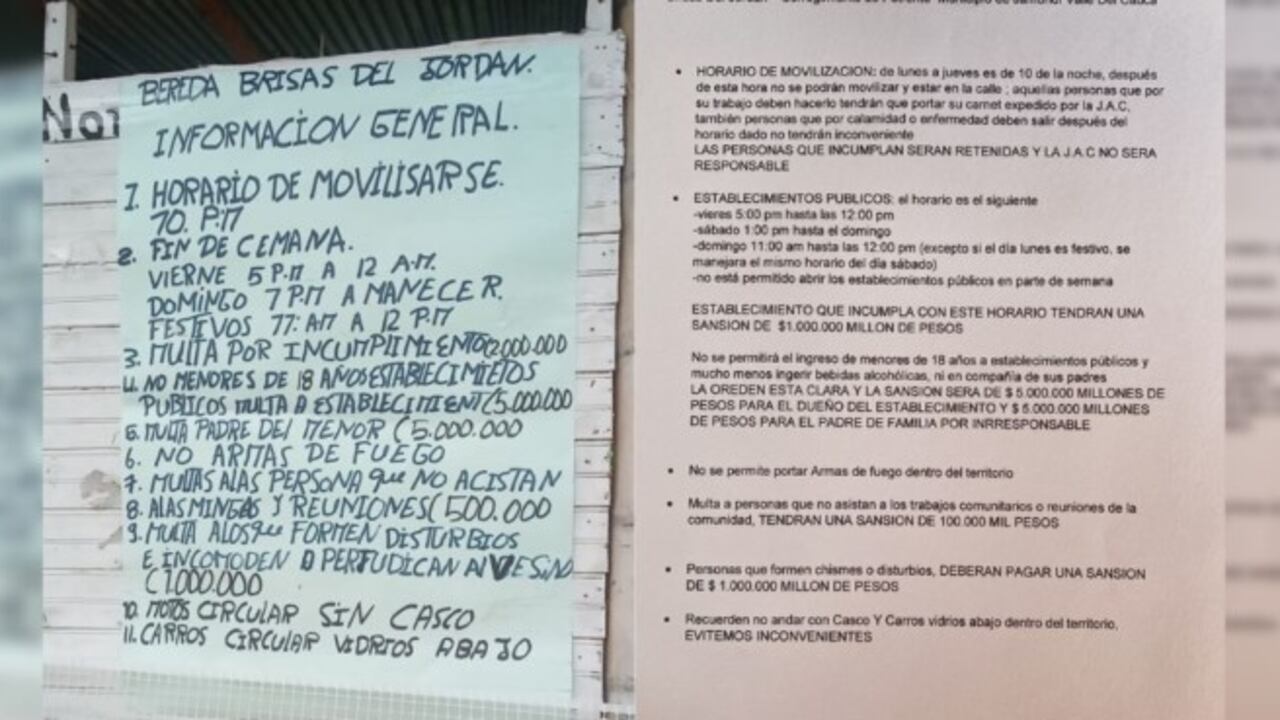 Not
BEREDA BRISAS DEL JORDAN.
INFORMACION GENERAL.
1. HORARIO DE MOVILISARSE.
10. P.M
2. FIN DE CEMANA.
VIERNE 5 P.M A 12 A.M.
DOMINGO 7 P.M A MANECER.
FESTIVOS 11: AM A 12 P.M
3. MULTA POR INCUMPLIMIENTO(2.000.000
4. NO MENORES DE 18 AÑOS ESTABLECIMIETOS
PUBLICOS MULTA A ESTABLECIMIENT(5.000.000
5. MULTA PADRE DEL MENOR (5.000.000
6. NO ARMAS DE FUEGO
7. MULTAS ALAS PERSONA que NO ACISTAN
8. ALAS MINGAS Y REUNIONES(500.000
9. MULTA ALOS que FORMEN DISTURBIOS
E INCOMODEN O PERJUDICAN AL VESINO
(1.000.000
10. MOTOS CIRCULAR SIN CASCO
11. CARROS CIRCULAR VIDRIOS ABAJO
• HORARIO DE MOVILIZACION: de lunes a jueves es de 10 de la noche, después
de esta hora no se podrán movilizar y estar en la calle ; aquellas personas que por
su trabajo deben hacerlo tendrán que portar su carnet expedido por la J.A.C,
también personas que por calamidad o enfermedad deben salir después del
horario dado no tendrán inconveniente
LAS PERSONAS QUE INCUMPLAN SERAN RETENIDAS Y LA J.A.C NO SERA
RESPONSABLE
• ESTABLECIMIENTOS PUBLICOS: el horario es el siguiente
-vieres 5:00 pm hasta las 12:00 pm
-sábado 1:00 pm hasta el domingo
-domingo 11:00 am hasta las 12:00 pm (excepto si el día lunes es festivo, se
manejara el mismo horario del día sábado)
-no está permitido abrir los establecimientos públicos en parte de semana
ESTABLECIMIENTO QUE INCUMPLA CON ESTE HORARIO TENDRAN UNA
SANSION DE $1.000.000 MILLON DE PESOS
No se permitirá el ingreso de menores de 18 años a establecimientos públicos y
mucho menos ingerir bebidas alcohólicas, ni en compañía de sus padres
LA OREDEN ESTA CLARA Y LA SANSION SERA DE $ 5.000.000 MILLONES DE
PESOS PARA EL DUEÑO DEL ESTABLECIMIENTO Y $ 5.000.000 MILLONES
DE PESOS PARA EL PADRE DE FAMILIA POR INRRESPONSABLE
• No se permite portar Armas de fuego dentro del territorio
• Multa a personas que no asistan a los trabajos comunitarios o reuniones de la
comunidad, TENDRAN UNA SANSION DE 100.000 MIL PESOS
• Personas que formen chismes o disturbios, DEBERAN PAGAR UNA SANSION
DE $ 1.000.000 MILLON DE PESOS
• Recuerden no andar con Casco Y Carros vidrios abajo dentro del territorio,
EVITEMOS INCONVENIENTES